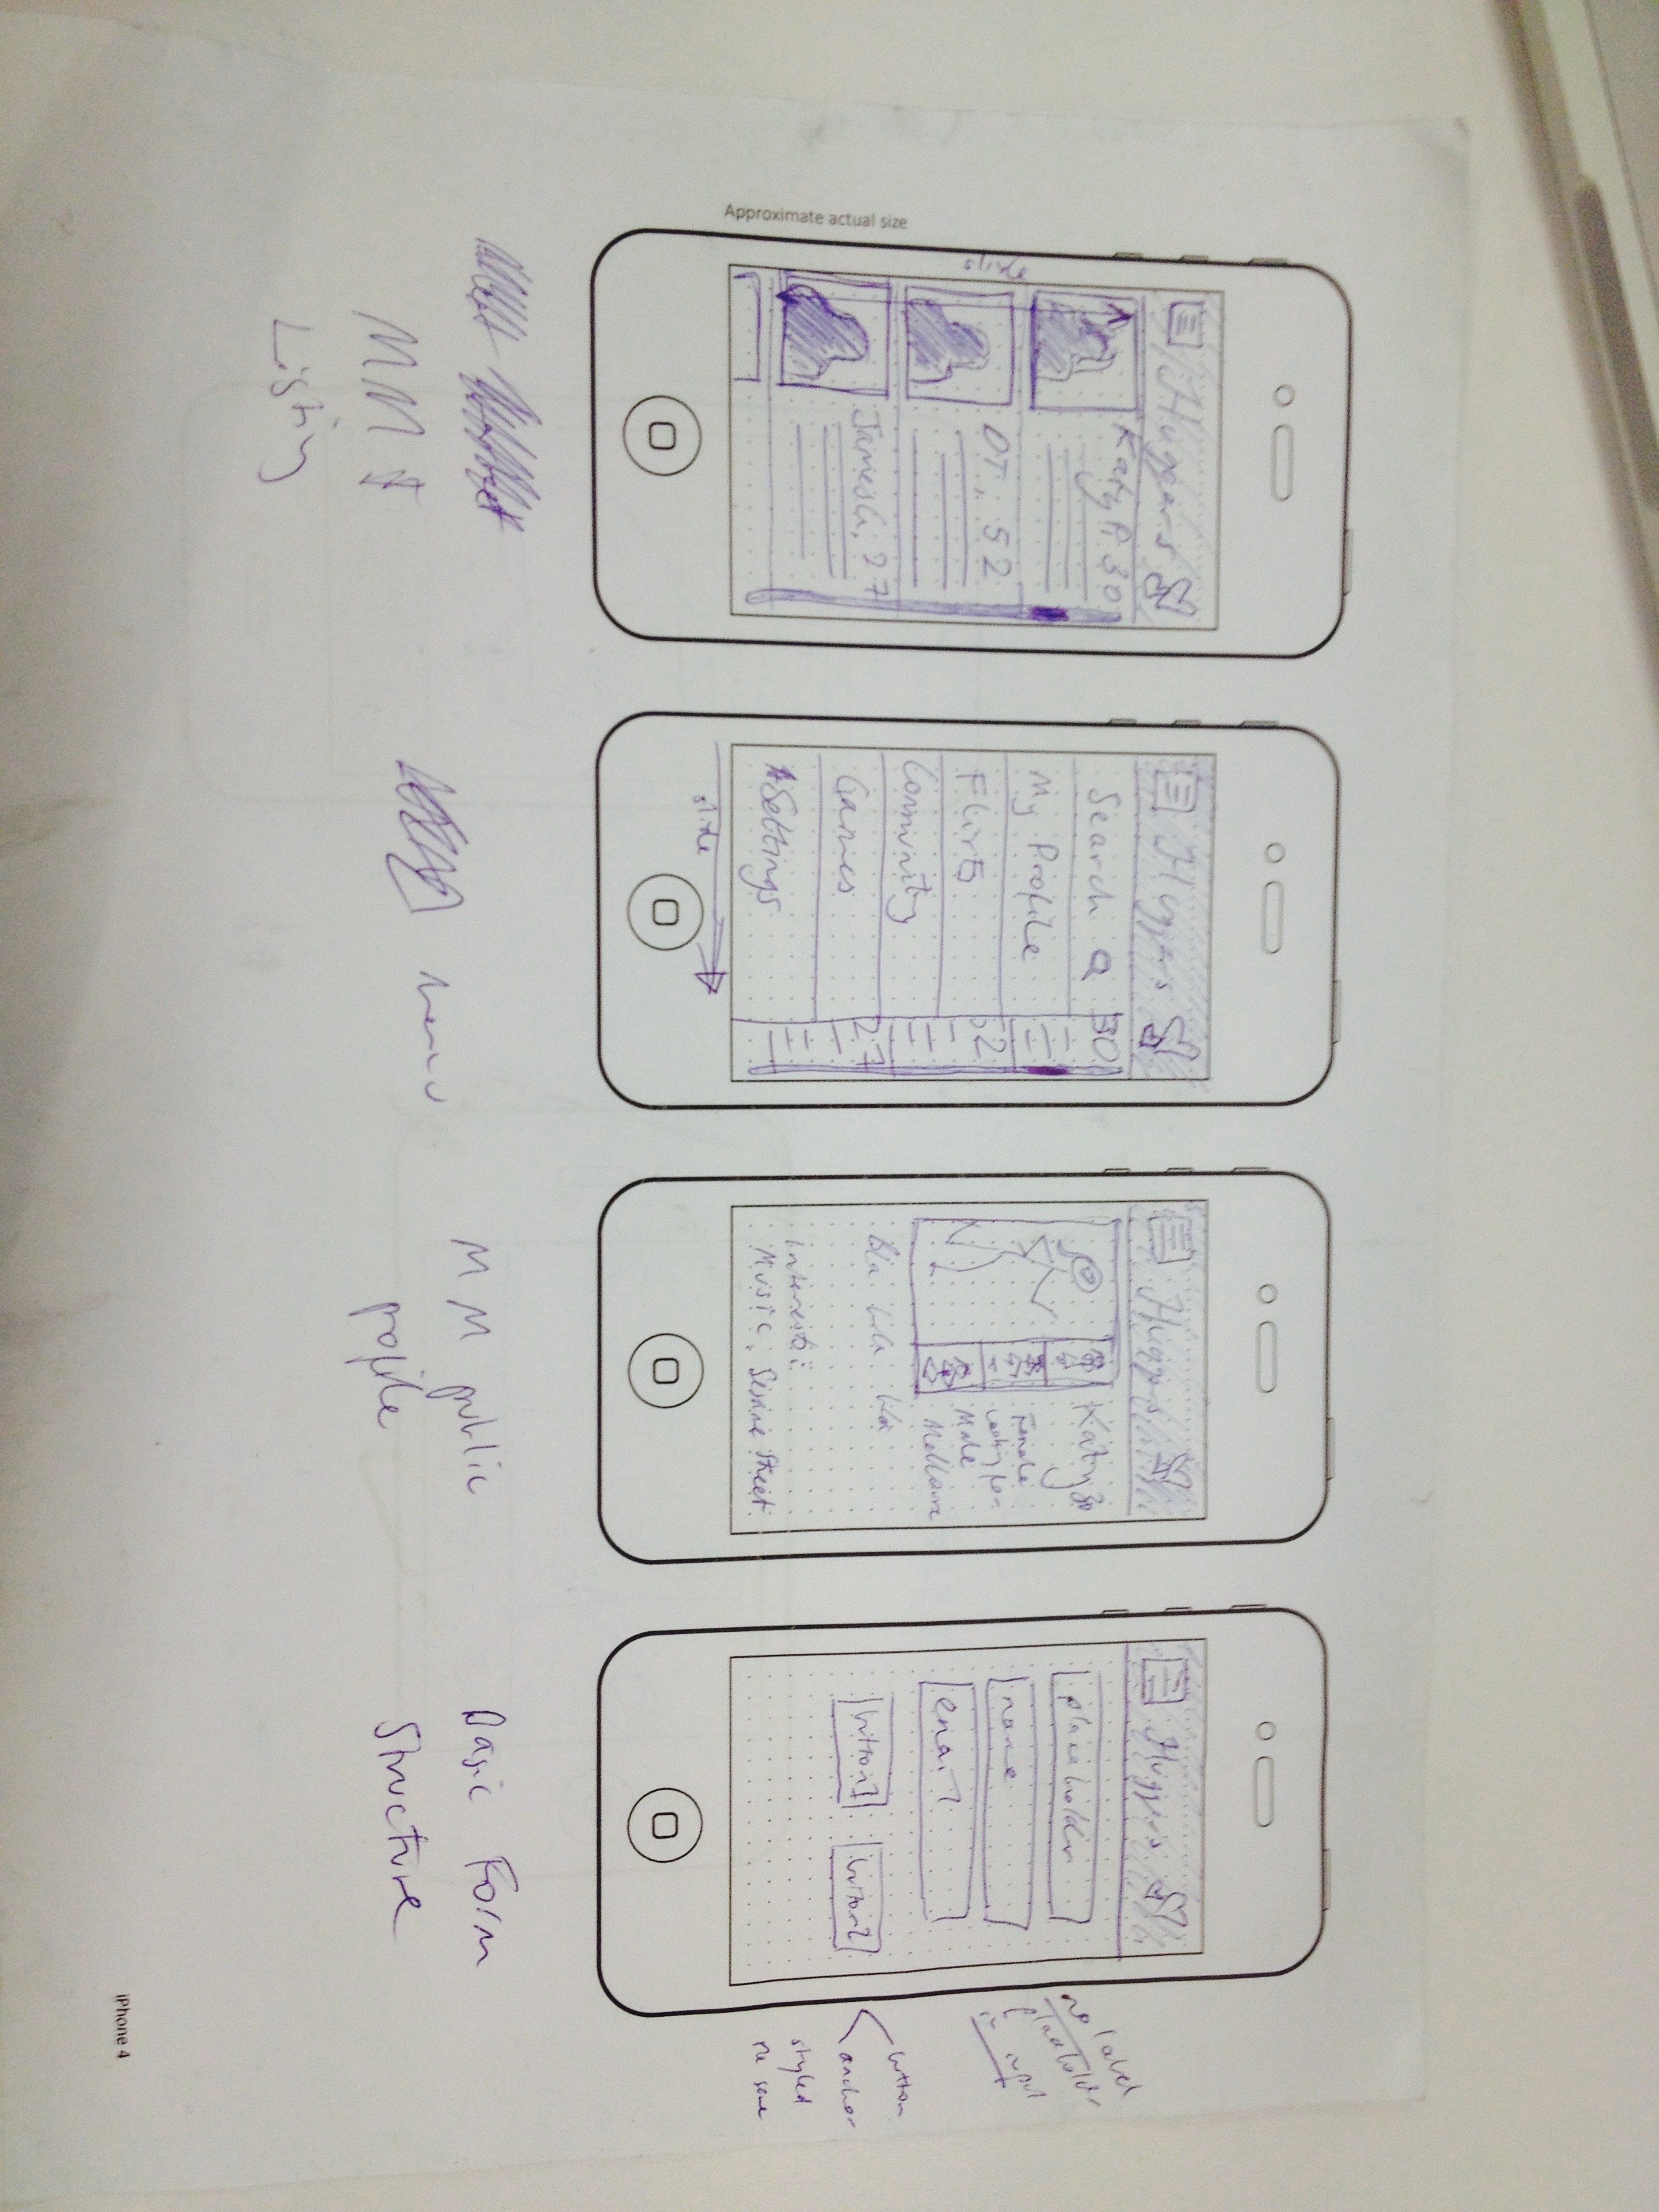 Approximate actual size
Huggers
Katy P. 30
OT, 52
James G, 27
slide
MM
Listing
Huggers
Search
My Profile
Flirts
Community
Games
Settings
30
52
27
slide
menu
Huggers
Katy 30
Female
Looking for
Male
Melbourne
Bla bla bla
Interests:
Music, Sesame Street
MM public
profile
Huggers
placeholder
name
email
button1
button2
no label
placeholder
in input
button
anchor
styled
the same
Basic Form
Structure
iPhone 4